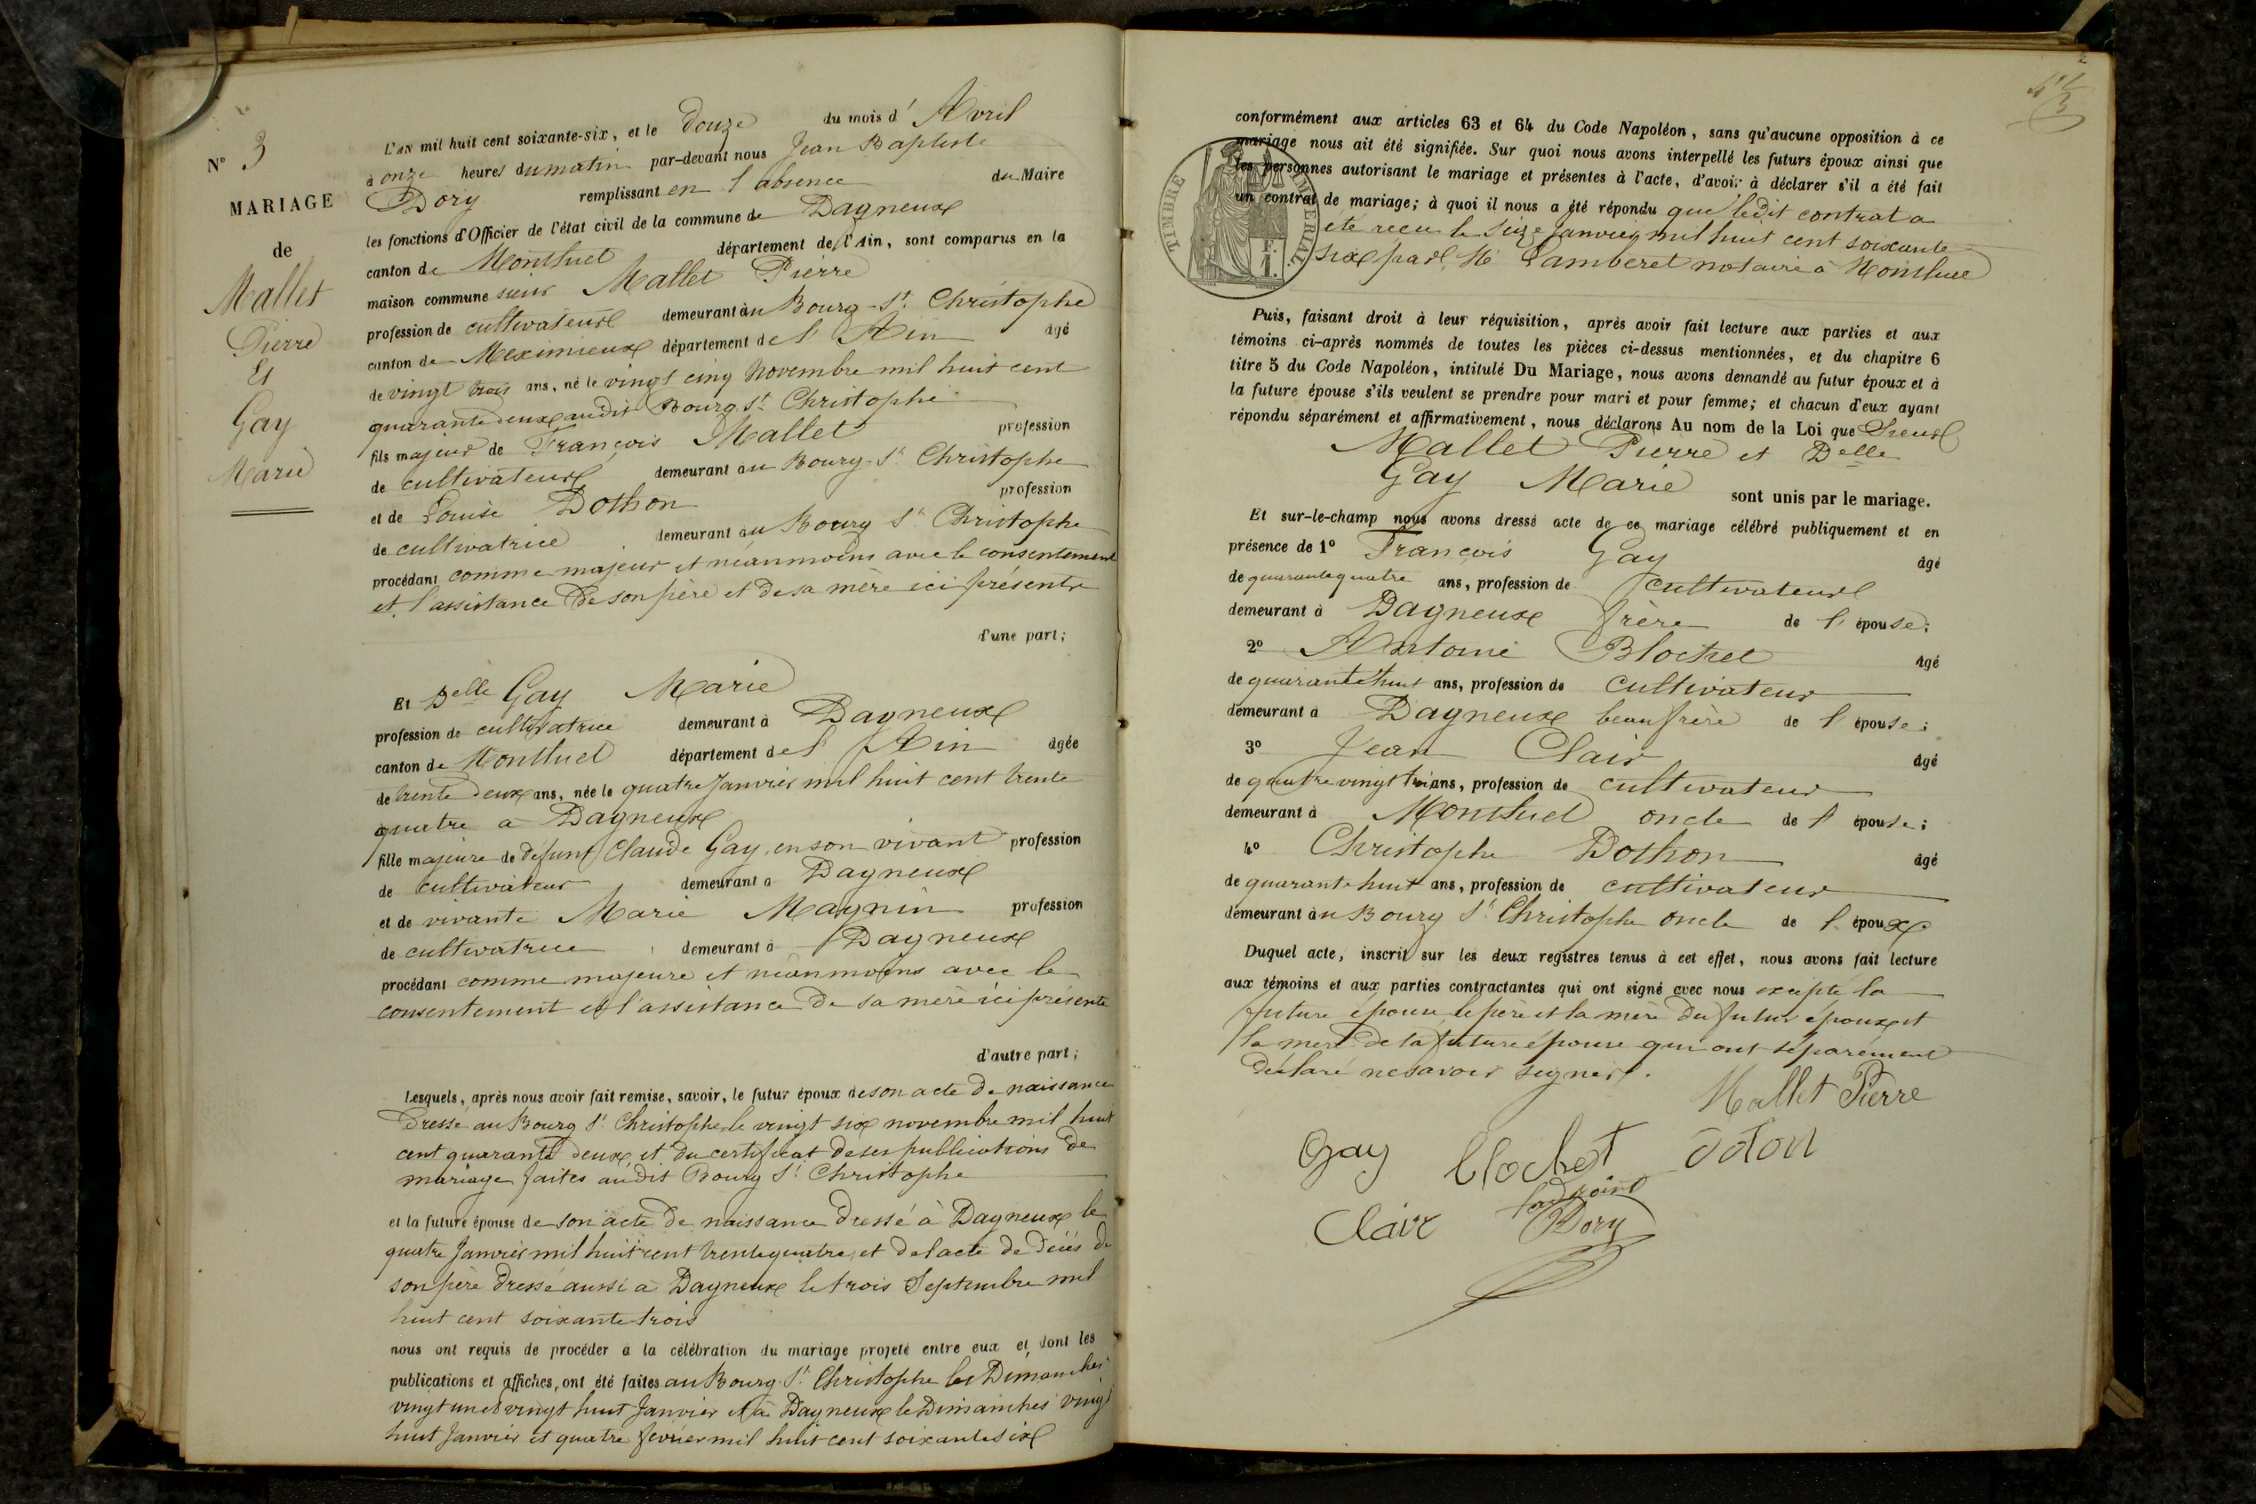 N° 3
MARIAGE
de
Mallet
Pierre
Et
Gay
Marie
L'AN mil huit cent soixante-six, et le Douze du mois d'Avril
à onze heures du matin par-devant nous Jean Baptiste
Dory remplissant en l'absence du Maire
les fonctions d'Officier de l'état civil de la commune de Dagneux
canton de Montluel département de l'Ain, sont comparus en la
maison commune sieur Mallet Pierre
profession de cultivateur demeurant au Bourg-St Christophe
canton de Meximieux département de l'Ain âgé
de vingt trois ans, né le vingt cinq Novembre mil huit cent
quarante deux audit Bourg St Christophe
fils majeur de François Mallet profession
de cultivateur demeurant au Bourg-St Christophe
et de Louise Dothon profession
de cultivatrice demeurant au Bourg St Christophe
procédant comme majeur et néanmoins avec le consentement
et l'assistance de son père et de sa mère ici présents
d'une part;
Et Delle Gay Marie
profession de cultivatrice demeurant à Dagneux
canton de Montluel département de l'Ain âgée
de trente deux ans, née le quatre Janvier mil huit cent trente
quatre à Dagneux
fille majeure de défunt Claude Gay, en son vivant profession
de cultivateur demeurant à Dagneux
et de vivante Marie Magnin profession
de cultivatrice demeurant à Dagneux
procédant comme majeure et néanmoins avec le
consentement et l'assistance de sa mère ici présente
d'autre part;
Lesquels, après nous avoir fait remise, savoir, le futur époux de son acte de naissance
dressé au Bourg St Christophe le vingt six novembre mil huit
cent quarante deux et du certificat de ses publications de
mariage faites audit Bourg St Christophe
et la future épouse de son acte de naissance dressé à Dagneux le
quatre Janvier mil huit cent trente quatre, et de l'acte de décès de
son père dressé aussi à Dagneux le trois Septembre mil
huit cent soixante trois
nous ont requis de procéder à la célébration du mariage projeté entre eux et dont les
publications et affiches, ont été faites au Bourg-St Christophe les Dimanches
vingt un et vingt huit Janvier et à Dagneux le Dimanches vingt
huit Janvier et quatre février mil huit cent soixante six
conformément aux articles 63 et 64 du Code Napoléon, sans qu'aucune opposition à ce
mariage nous ait été signifiée. Sur quoi nous avons interpellé les futurs époux ainsi que
les personnes autorisant le mariage et présentes à l'acte, d'avoir à déclarer s'il a été fait
un contrat de mariage; à quoi il nous a été répondu que ledit contrat a
été reçu le seize Janvier mil huit cent soixante
six par Me Lamberet notaire à Montluel
TIMBRE IMPERIAL
1 F.
Puis, faisant droit à leur réquisition, après avoir fait lecture aux parties et aux
témoins ci-après nommés de toutes les pièces ci-dessus mentionnées, et du chapitre 6
titre 5 du Code Napoléon, intitulé Du Mariage, nous avons demandé au futur époux et à
la future épouse s'ils veulent se prendre pour mari et pour femme; et chacun d'eux ayant
répondu séparément et affirmativement, nous déclarons Au nom de la Loi que Sieur
Mallet Pierre et Delle
Gay Marie sont unis par le mariage.
Et sur-le-champ nous avons dressé acte de ce mariage célébré publiquement et en
présence de 1° François Gay âgé
de quarante quatre ans, profession de cultivateur
demeurant à Dagneux frère de l'épouse;
2° Antoine Blochet âgé
de quarante huit ans, profession de cultivateur
demeurant à Dagneux beau frère de l'épouse;
3° Jean Clair âgé
de quatre vingt trois ans, profession de cultivateur
demeurant à Montluel oncle de l'épouse;
4° Christophe Dothon âgé
de quarante huit ans, profession de cultivateur
demeurant au Bourg St Christophe oncle de l'époux
Duquel acte, inscrit sur les deux registres tenus à cet effet, nous avons fait lecture
aux témoins et aux parties contractantes qui ont signé avec nous excepté la
future épouse, le père et la mère du futur époux et
la mère de la future épouse qui ont séparément
déclaré ne savoir signer.
Mallet Pierre
Gay blochet odon
Clair l'adjoint
Dory